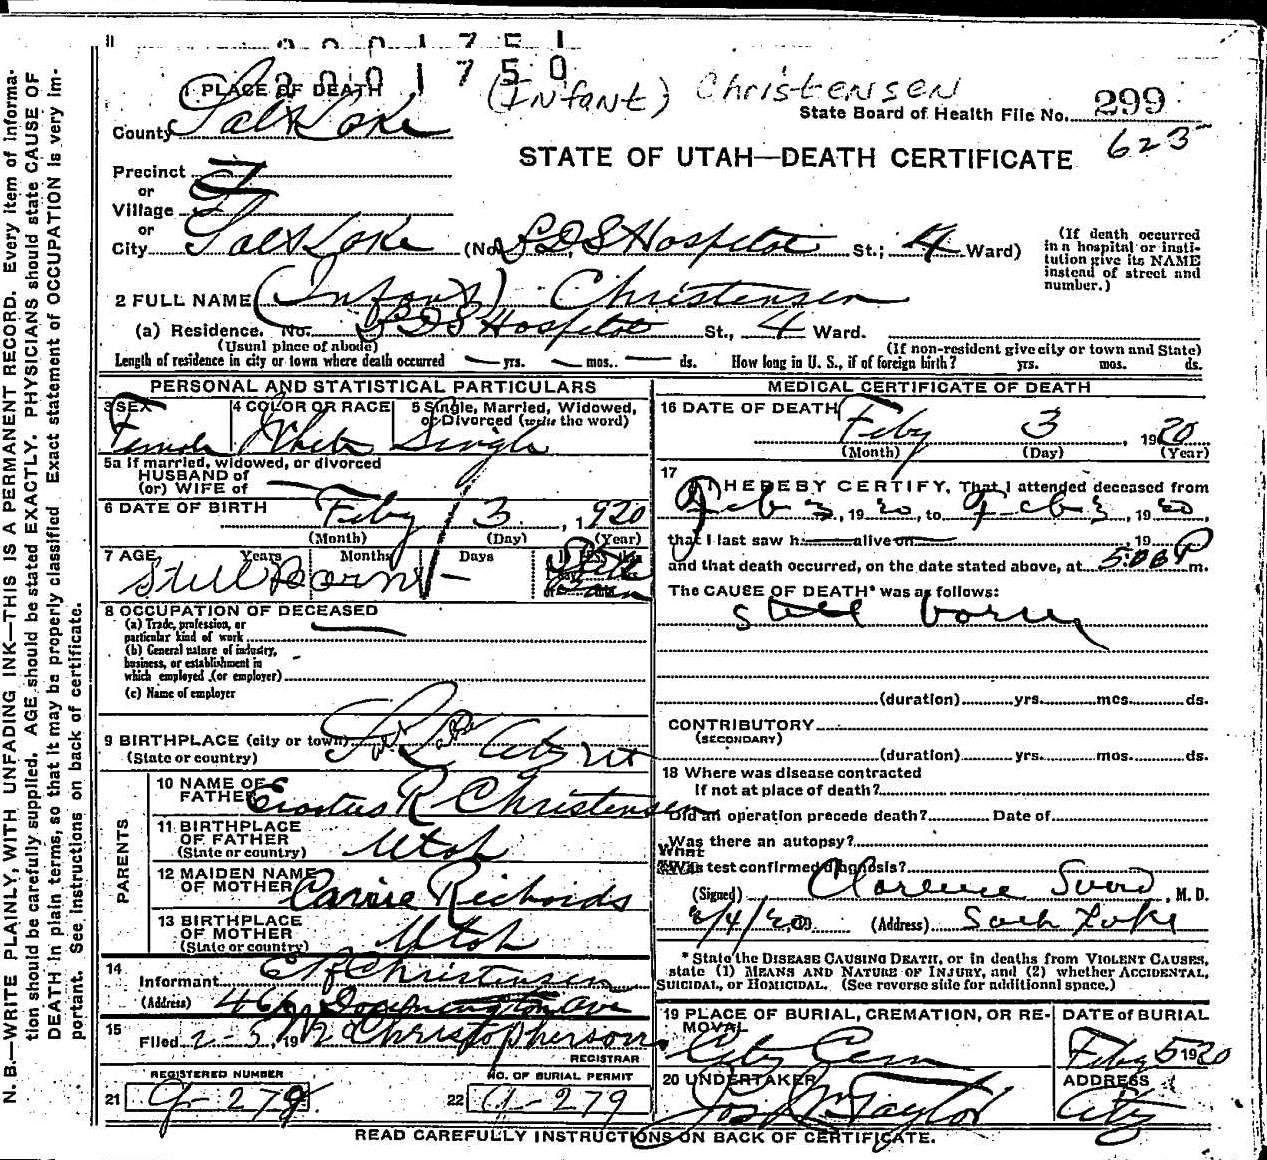 2001751
2001750
(Infant) Christensen
1 PLACE OF DEATH
State Board of Health File No. 299
County Salt Lake
623
STATE OF UTAH—DEATH CERTIFICATE
Precinct
or
Village
or
City Salt Lake (No. L D S Hospital St.; 4 Ward)
(If death occurred in a hospital or institution give its NAME instead of street and number.)
2 FULL NAME (Infant) Christensen
(a) Residence. No. L D S Hospital St., 4 Ward.
(Usual place of abode)
(If non-resident give city or town and State)
Length of residence in city or town where death occurred — yrs. — mos. — ds. How long in U. S., if of foreign birth? yrs. mos. ds.
PERSONAL AND STATISTICAL PARTICULARS
3 SEX
Female
4 COLOR OR RACE
White
5 Single, Married, Widowed,
or Divorced (write the word)
Single
5a If married, widowed, or divorced
HUSBAND of
(or) WIFE of —
6 DATE OF BIRTH Feby 3, 1920
(Month) (Day) (Year)
7 AGE Years Months Days
Still Born —
8 OCCUPATION OF DECEASED
(a) Trade, profession, or
particular kind of work
(b) General nature of industry,
business, or establishment in
which employed (or employer)
(c) Name of employer
9 BIRTHPLACE (city or town) Salt Lake City Ut
(State or country)
PARENTS
10 NAME OF
FATHER Erastus R Christensen
11 BIRTHPLACE
OF FATHER
(State or country) Utah
12 MAIDEN NAME
OF MOTHER Carrie Richards
13 BIRTHPLACE
OF MOTHER
(State or country) Utah
14
Informant E R Christensen
(Address) 466 Downington Ave
15
Filed 2-5, 19
Christopherson
REGISTRAR
REGISTERED NUMBER
21
NO. OF BURIAL PERMIT
22
MEDICAL CERTIFICATE OF DEATH
16 DATE OF DEATH
Feby 3, 1920
(Month) (Day) (Year)
17
I HEREBY CERTIFY, That I attended deceased from
Feb 3, 1920, to Feb 3, 1920,
that I last saw h— alive on —, 19
and that death occurred, on the date stated above, at P m.
The CAUSE OF DEATH* was as follows:
still born
(duration) yrs. mos. ds.
CONTRIBUTORY
(SECONDARY)
(duration) yrs. mos. ds.
18 Where was disease contracted
If not at place of death?
Did an operation precede death? Date of
Was there an autopsy?
What test confirmed diagnosis?
(Signed) Clarence Snow, M. D.
2/4/20 (Address) Salt Lake
* State the DISEASE CAUSING DEATH, or in deaths from VIOLENT CAUSES,
state (1) MEANS AND NATURE OF INJURY, and (2) whether ACCIDENTAL,
SUICIDAL, or HOMICIDAL. (See reverse side for additional space.)
19 PLACE OF BURIAL, CREMATION, OR REMOVAL
City Cem
DATE of BURIAL
Feby 5 1920
20 UNDERTAKER
Jos Wm Taylor
ADDRESS
City
READ CAREFULLY INSTRUCTIONS ON BACK OF CERTIFICATE.
N. B.—WRITE PLAINLY, WITH UNFADING INK—THIS IS A PERMANENT RECORD. Every item of information should be carefully supplied. AGE should be stated EXACTLY. PHYSICIANS should state CAUSE OF DEATH in plain terms, so that it may be properly classified. Exact statement of OCCUPATION is very important. See instructions on back of certificate.